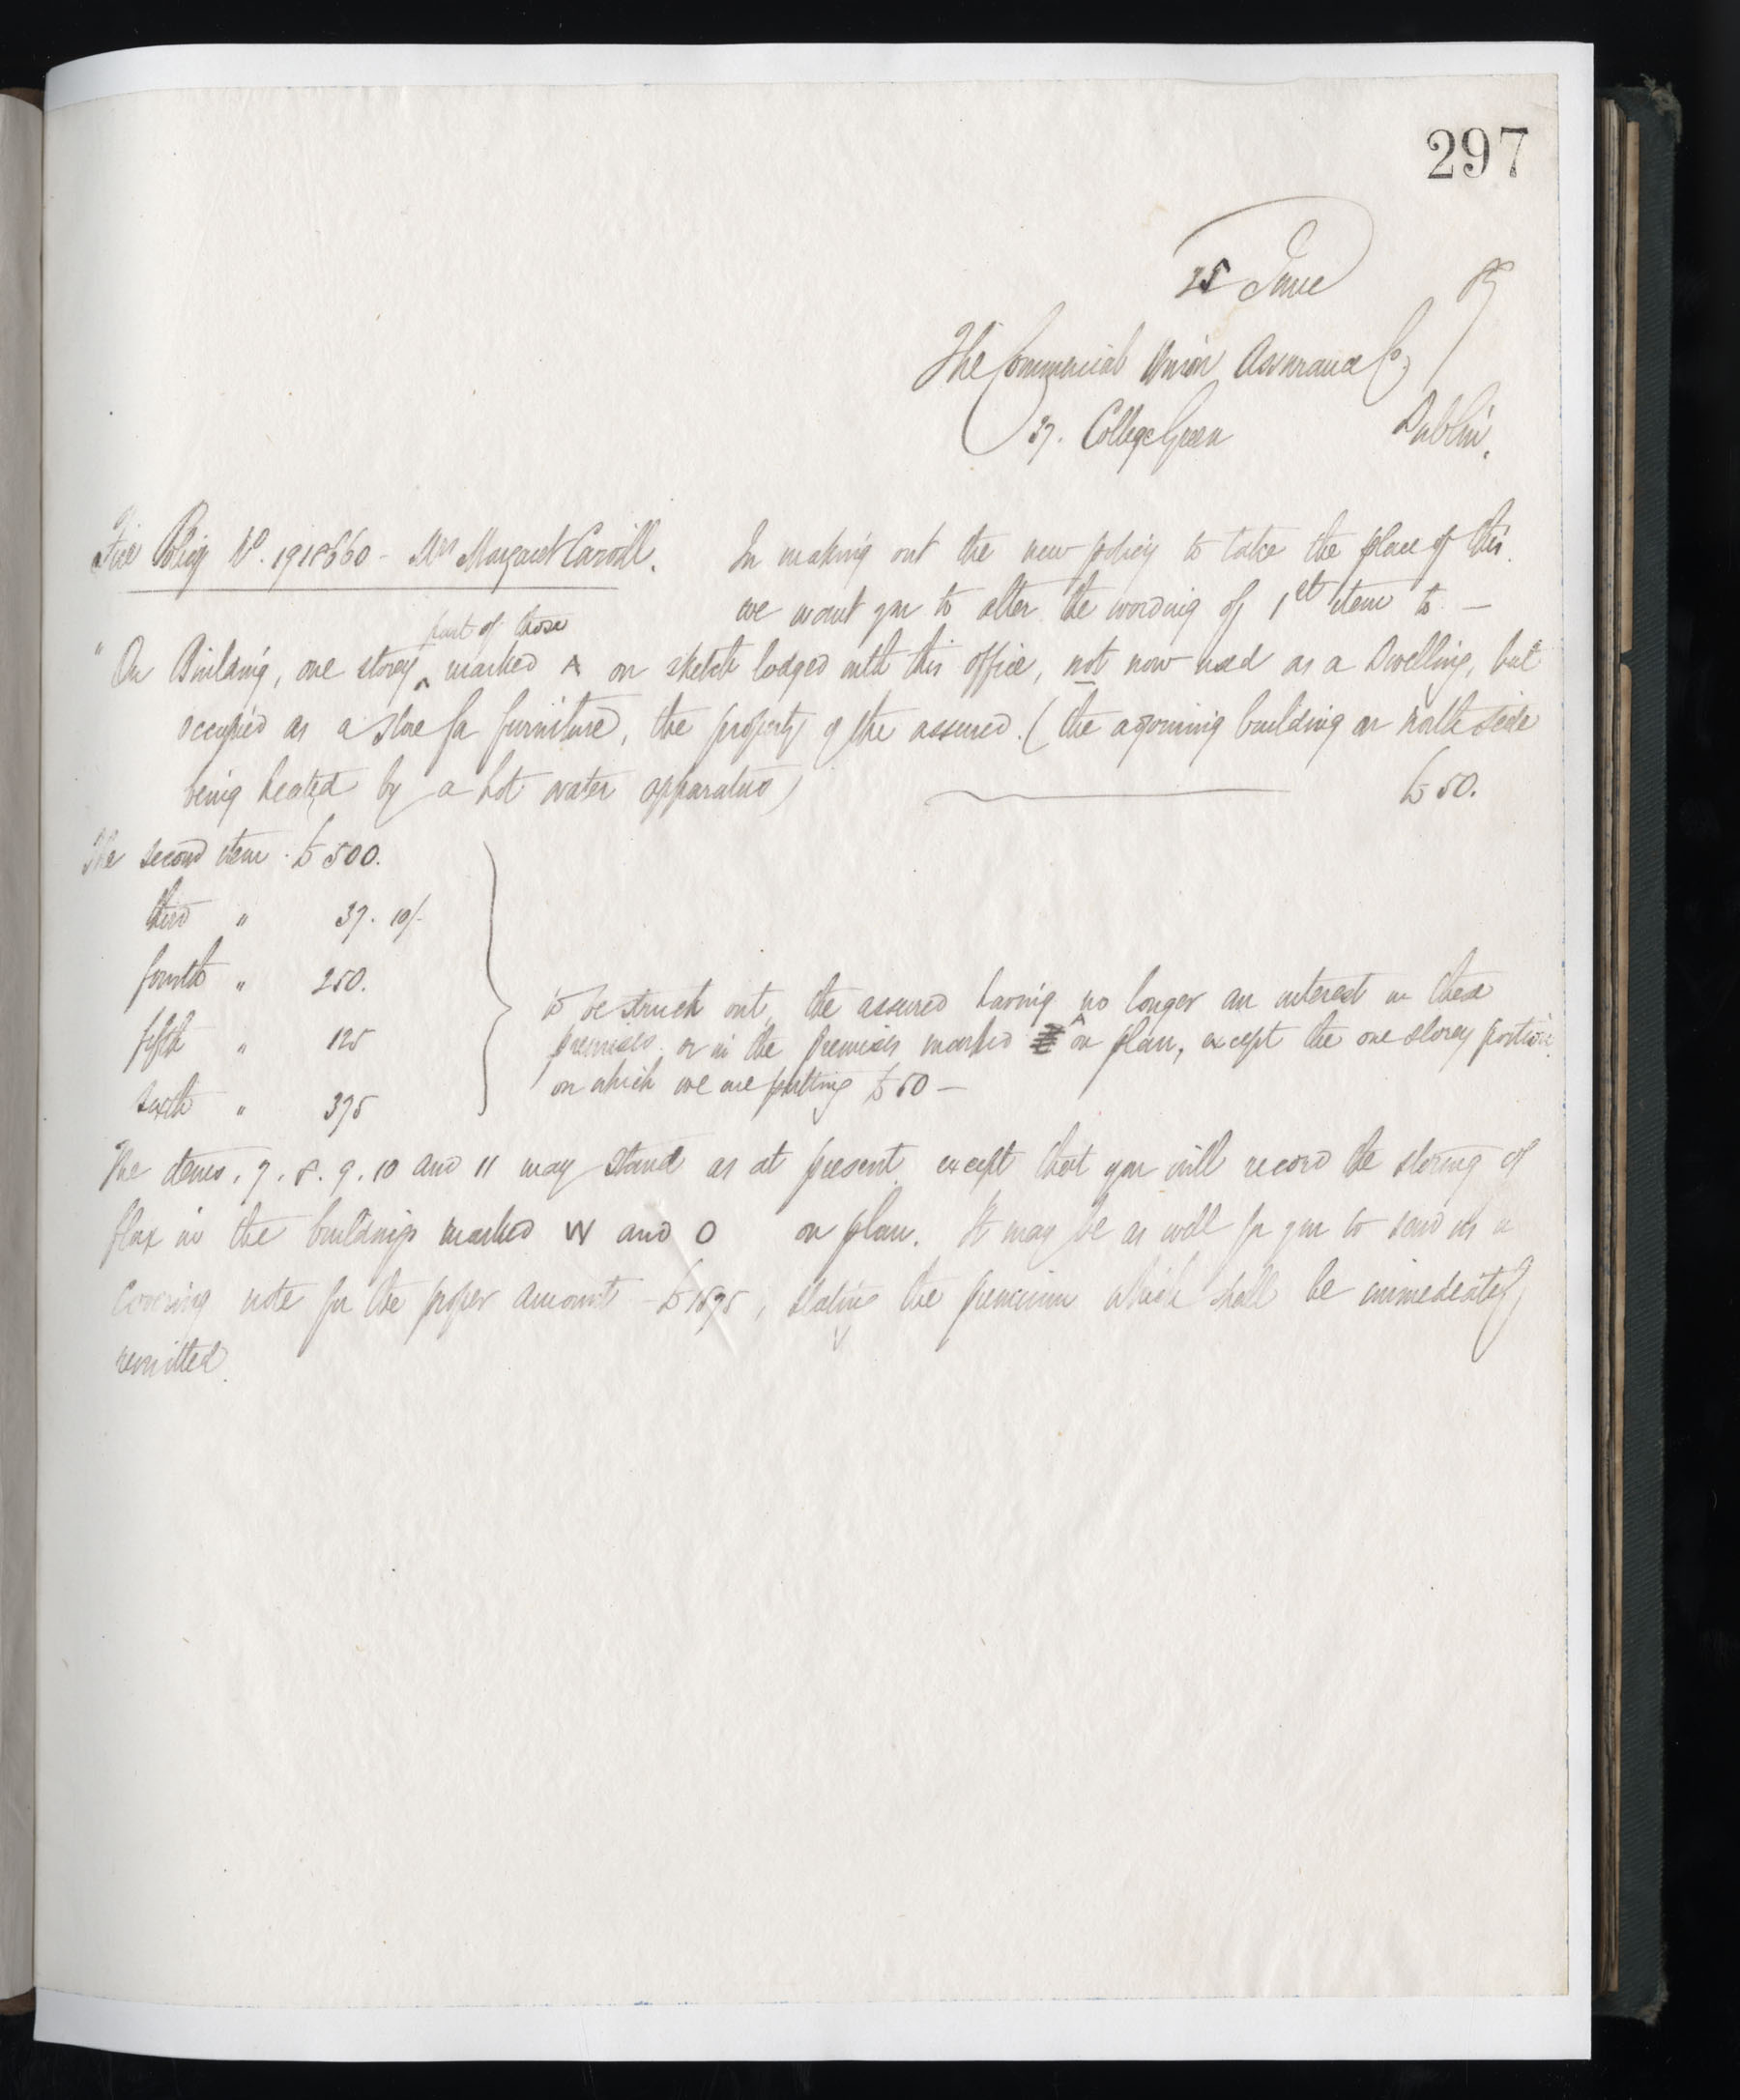 297
25 June 89
The Commercial Union Assurance Co,
37. College Green Dublin.
Fire Policy No. 1918660 - Mrs Margaret Carvill. In making out the new policy to take the place of this.
we want you to alter the wording of 1st item to -
part of those
"On Building, one storey ^ marked A on sketch lodged with this office, not now used as a Dwelling, but
occupied as a store for furniture, the property of the assured. (the adjoining building on north side
being heated by a hot water apparatus) £50.
The second item £500.
third " 37. 10/-
fourth " 250.
fifth " 125
sixth " 375
to be struck out, the assured having no longer an interest in these
premises, or in the premises marked ^ on plan, except the one storey portion
on which we are putting £50 -
The items, 7. 8. 9. 10 and 11 may stand as at present, except that you will record the storing of
flax in the buildings marked W and O on plan. It may be as well for you to send us a
covering note for the proper amount - £1875, stating the premium which shall be immediately
remitted.